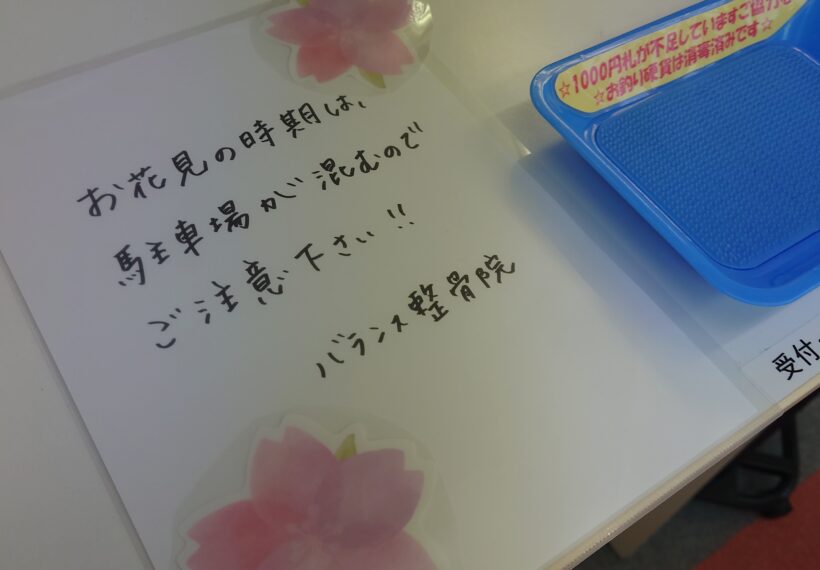 お花見の時期は、
駐車場が混むので
ご注意下さい!!
バランス整骨院
☆1000円札が不足していますご協力を
☆お釣り硬貨は消毒済みです☆
受付